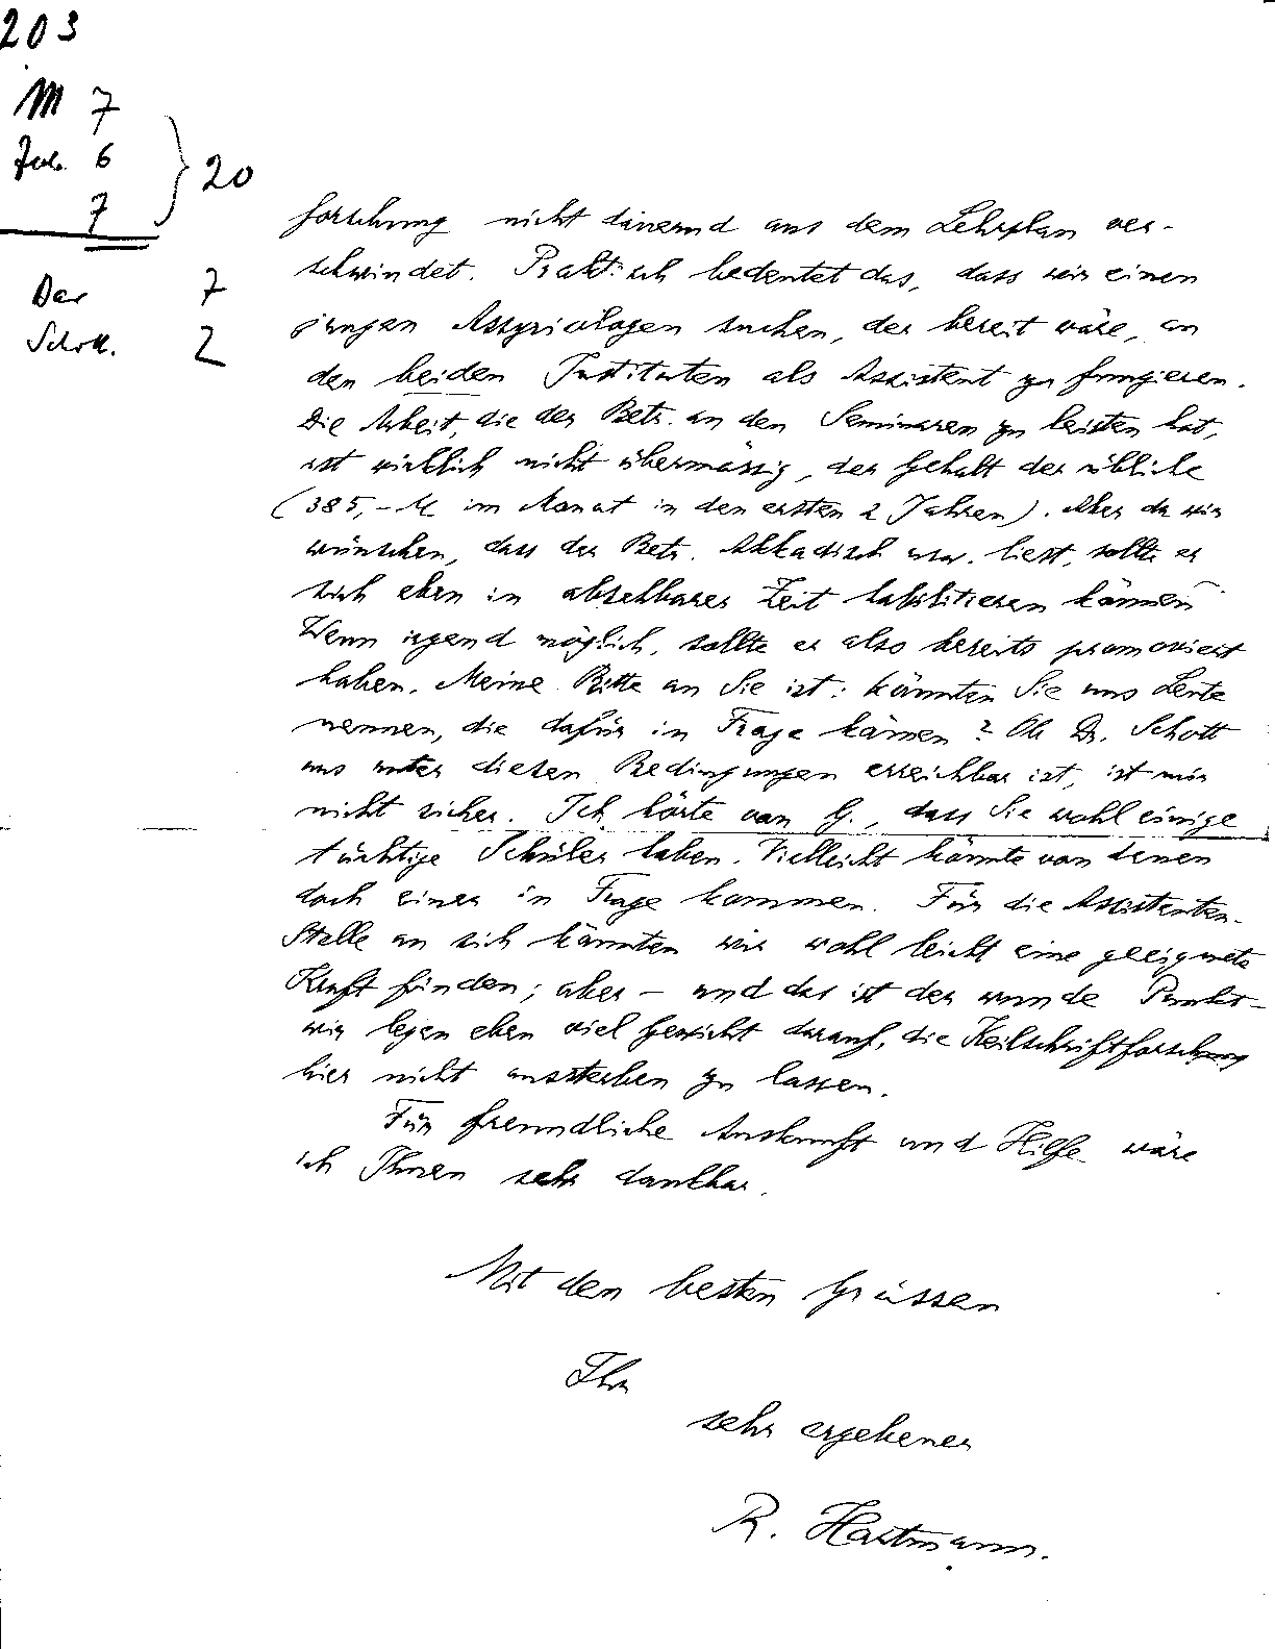 203
M 7
6
7
20
Der 7
Schott. 2
forschung nicht dauernd aus dem Lehrplan ver-
schwindet. Praktisch bedeutet das, dass wir einen
jungen Assyriologen suchen, der bereit wäre, an
den beiden Instituten als Assistent zu fungieren.
Die Arbeit, die der Betr. an den Seminaren zu leisten hat,
ist wirklich nicht übermässig, der Gehalt der übliche
(385,- M im Monat in den ersten 2 Jahren). Aber da wir
wünschen, dass der Betr. Akkadisch usw. liest, sollte er
sich eben in absehbarer Zeit habilitieren können.
Wenn irgend möglich, sollte er also bereits promoviert
haben. Meine Bitte an Sie ist: könnten Sie uns Leute
nennen, die dafür in Frage kämen? Ob Dr. Schott
uns unter diesen Bedingungen erreichbar ist, ist mir
nicht sicher. Ich hörte von G., dass Sie wohl einige
tüchtige Schüler haben. Vielleicht könnte von denen
doch einer in Frage kommen. Für die Assistenten-
Stelle an sich könnten wir wohl leicht eine geeignete
Kraft finden; aber – und das ist der wunde Punkt –
wir legen eben viel Gewicht darauf, die Keilschriftforschung
hier nicht aussterben zu lassen.
Für freundliche Auskunft und Hilfe wäre
ich Ihnen sehr dankbar.
Mit den besten Grüssen
Ihr
sehr ergebener
R. Hartmann.